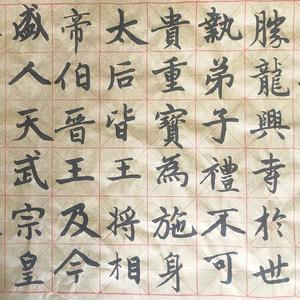 盛人天武宗皇
帝伯晉王及今
太后皆王將相
貴重寶為施身
執弟子禮不可
勝龍興寺於世